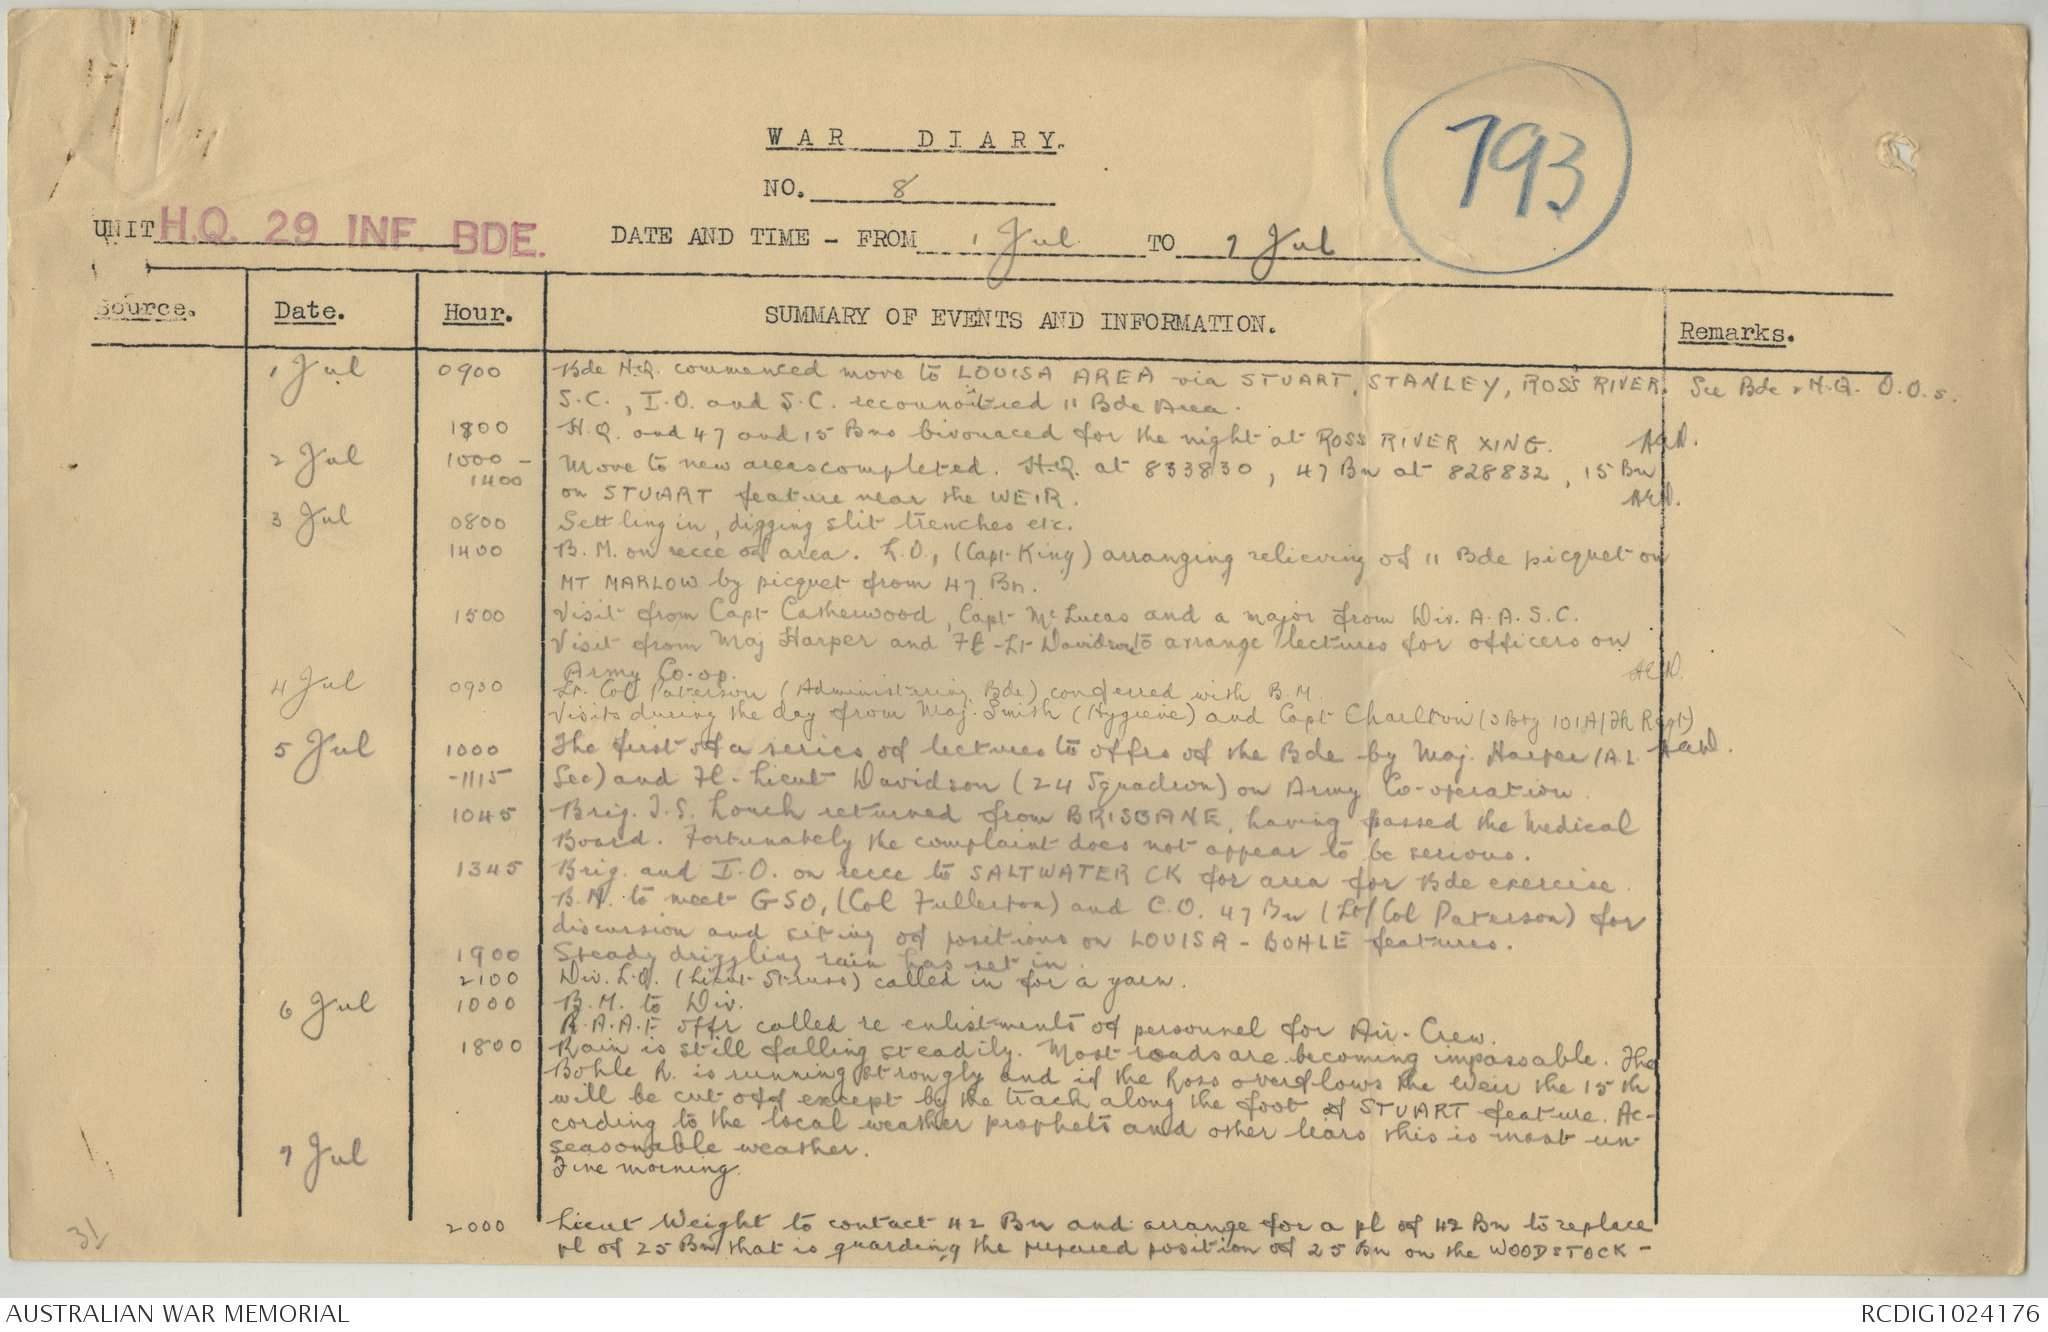 793
WAR DIARY.
NO. 8
UNIT H.Q. 29 INF. BDE. DATE AND TIME - FROM 1 Jul TO 7 Jul
Source. Date. Hour. SUMMARY OF EVENTS AND INFORMATION. Remarks.
1 Jul 0900 Bde H.Q. commenced move to LOUISA AREA via STUART, STANLEY, ROSS RIVER. See Bde H.Q. O.O.s.
S.C., I.O. and S.C. reconnoitred 11 Bde Area.
1800 H.Q. and 47 and 15 Bns bivouaced for the night at ROSS RIVER XING.
2 Jul 1000 - Move to new areas completed. H.Q. at 833830, 47 Bn at 828832, 15 Bn
1400 on STUART feature near the WEIR.
3 Jul 0800 Settling in, digging slit trenches etc.
1400 B.M. on recce of area. L.O., (Capt King) arranging relieving of 11 Bde picquet on
MT MARLOW by picquet from 47 Bn.
1500 Visit from Capt Catherwood, Capt McLucas and a major from Div. A.A.S.C.
Visit from Maj Harper and Fl-Lt Davidson to arrange lectures for officers on
Army Co-op.
4 Jul 0930 Lt. Col Paterson (Administering Bde) conferred with B.M.
Visits during the day from Maj. Smith (Hygiene) and Capt Charlton (3 Bty 101 A/Tk Regt)
5 Jul 1000 The first of a series of lectures to offrs of the Bde by Maj. Harper (A.L.
-1115 Sec) and Fl-Lieut Davidson (24 Squadron) on Army Co-operation.
1045 Brig. I.S. Lorch returned from BRISBANE, having passed the Medical
Board. Fortunately the complaint does not appear to be serious.
1345 Brig. and I.O. on recce to SALTWATER CK for area for Bde exercise.
B.M. to meet GSO, (Col Fullerton) and C.O. 47 Bn (Lt/Col Paterson) for
discussion and siting of positions on LOUISA - BOHLE features.
1900 Steady drizzling rain has set in.
2100 Div. L.O. (Lieut Struss) called in for a yarn.
6 Jul 1000 B.M. to Div.
R.A.A.F. offr called re enlistments of personnel for Air-Crew.
1800 Rain is still falling steadily. Most roads are becoming impassable. The
Bohle R. is running strongly and if the Ross overflows the weir the 15th
will be cut off except by the track along the foot of STUART feature. Ac-
cording to the local weather prophets and other liars this is most un-
seasonable weather.
7 Jul Fine morning.
2000 Lieut Weight to contact 42 Bn and arrange for a pl of 42 Bn to replace
pl of 25 Bn that is guarding the prepared position of 25 Bn on the WOODSTOCK -
31
AUSTRALIAN WAR MEMORIAL RCDIG1024176